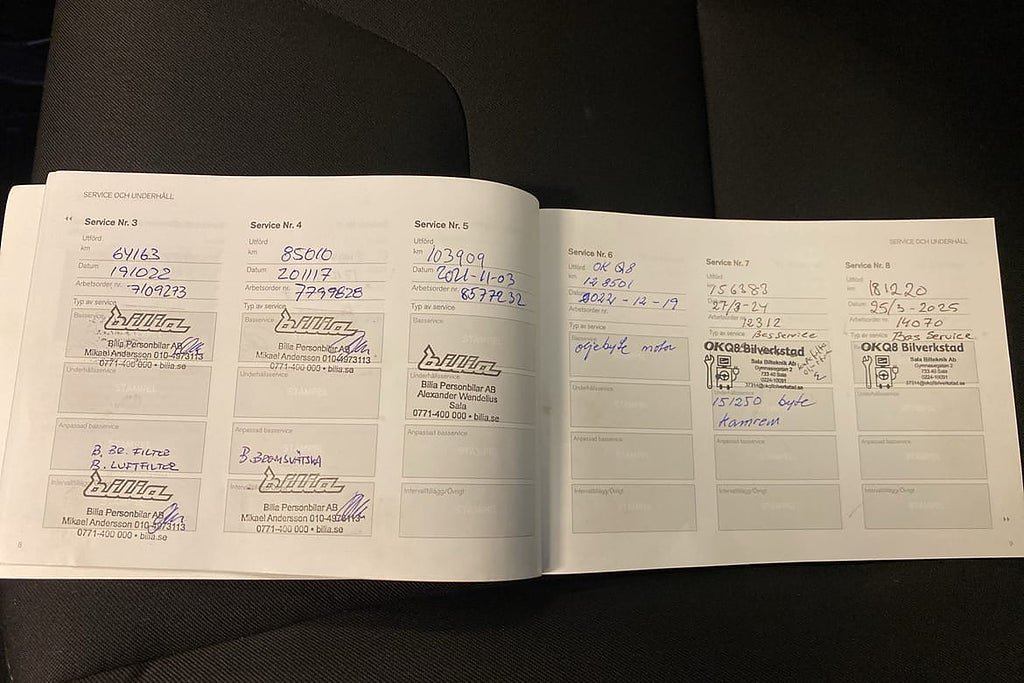 SERVICE OCH UNDERHÅLL
Service Nr. 3
Utförd
km 64163
Datum 191022
Arbetsorder nr. 7109273
Typ av service
Basservice
bilia
Billa Personbilar AB
Mikael Andersson 010-4973113
0771-400 000 • bilia.se
Underhållsservice
STÄMPEL
Anpassad basservice
B. BR. FILTER
B. LUFTFILTER
bilia
Bilia Personbilar AB
Mikael Andersson 010-4973113
0771-400 000 • bilia.se
8
Service Nr. 4
Utförd
km 85010
Datum 201117
Arbetsorder nr. 7799828
Typ av service
Basservice
bilia
Bilia Personbilar AB
Mikael Andersson 010-4973113
0771-400 000 • bilia.se
Underhållsservice
Anpassad basservice
B. BROMSVÄTSKA
bilia
Bilia Personbilar AB
Mikael Andersson 010-4973113
0771-400 000 • bilia.se
Service Nr. 5
Utförd
km 103909
Datum 2021-11-03
Arbetsorder nr. 8577232
Typ av service
Basservice
bilia
Underhållsservice
Bilia Personbilar AB
Alexander Wendelius
Sala
0771-400 000 • bilia.se
Anpassad basservice
Intervalltillägg/Övrigt
STÄMPEL
SERVICE OCH UNDERHÅLL
Service Nr. 6
Utförd OK Q8
km 128501
Datum 2022-12-19
Arbetsorder nr.
Typ av service
oljebyte motor
Underhållsservice
Anpassad basservice
Intervalltillägg/Övrigt
STÄMPEL
Service Nr. 7
Utförd
27/3-24
Arbetsorder nr.
12312
Typ av service Basservice
OKQ8 Bilverkstad
Sala Bilteknik Ab
Gymnasiegatan 2
733 40 Sala
0224-10091
151250 byte
Kamrem
Anpassad basservice
STÄMPEL
Intervalltillägg/Övrigt
Service Nr. 8
Utförd
km 181220
Datum 25/3-2025
Arbetsorder nr. 14070
Typ av service Bas Service
OKQ8 Bilverkstad
Sala Bilteknik Ab
Gymnasiegatan 2
733 40 Sala
0224-10091
Underhållsservice
Anpassad basservice
STÄMPEL
Intervalltillägg/Övrigt
9